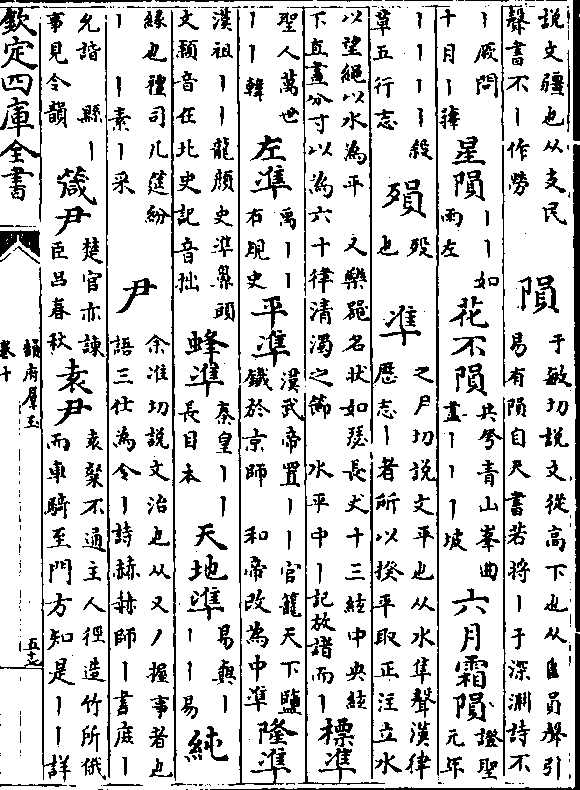 說文彊也从支民
聲書不丨作勞
隕
于敏切說文從高下也从𨸏員聲引
易有隕自天書若將丨于深淵詩不
丨厥問
十月丨蘀
星隕
丨丨如
雨左
花不隕
共兮青山峯曲
畫丨丨丨坡
六月霜隕
證聖
元年
丨丨丨丨殺
草五行志
殞
歿
也
準
之尹切說文平也从水隼聲漢律
歷志丨者所以揆平取正注立水
以望繩以水為平 又樂絙名狀如瑟長丈十三絃中央絃
下直畫分寸以為六十律清濁之節 水平中丨記放諸而丨
標準
聖人萬世
丨丨韓
左準
禹丨丨
有規史
平準
漢武帝置丨丨官籠天下鹽
鐵於京師 和帝改為中準
隆準
漢祖丨丨龍顏史準鼻頭
文穎音在北史記音拙
蜂準
秦皇丨丨
長目本
天地準
易與丨
丨丨易
純
緣也禮司几筵紛
丨素丨采
尹
余准切說文治也从又丿握事者也
語三仕為令丨詩赫赫師丨書庭丨
允諧 縣丨
事見令韻
箴尹
楚官亦諫
臣呂春秋
袁尹
袁粲不通主人徑造竹所俄
而車騎至門方知是丨丨詳
欽定四庫全書
韻府羣玉
卷十